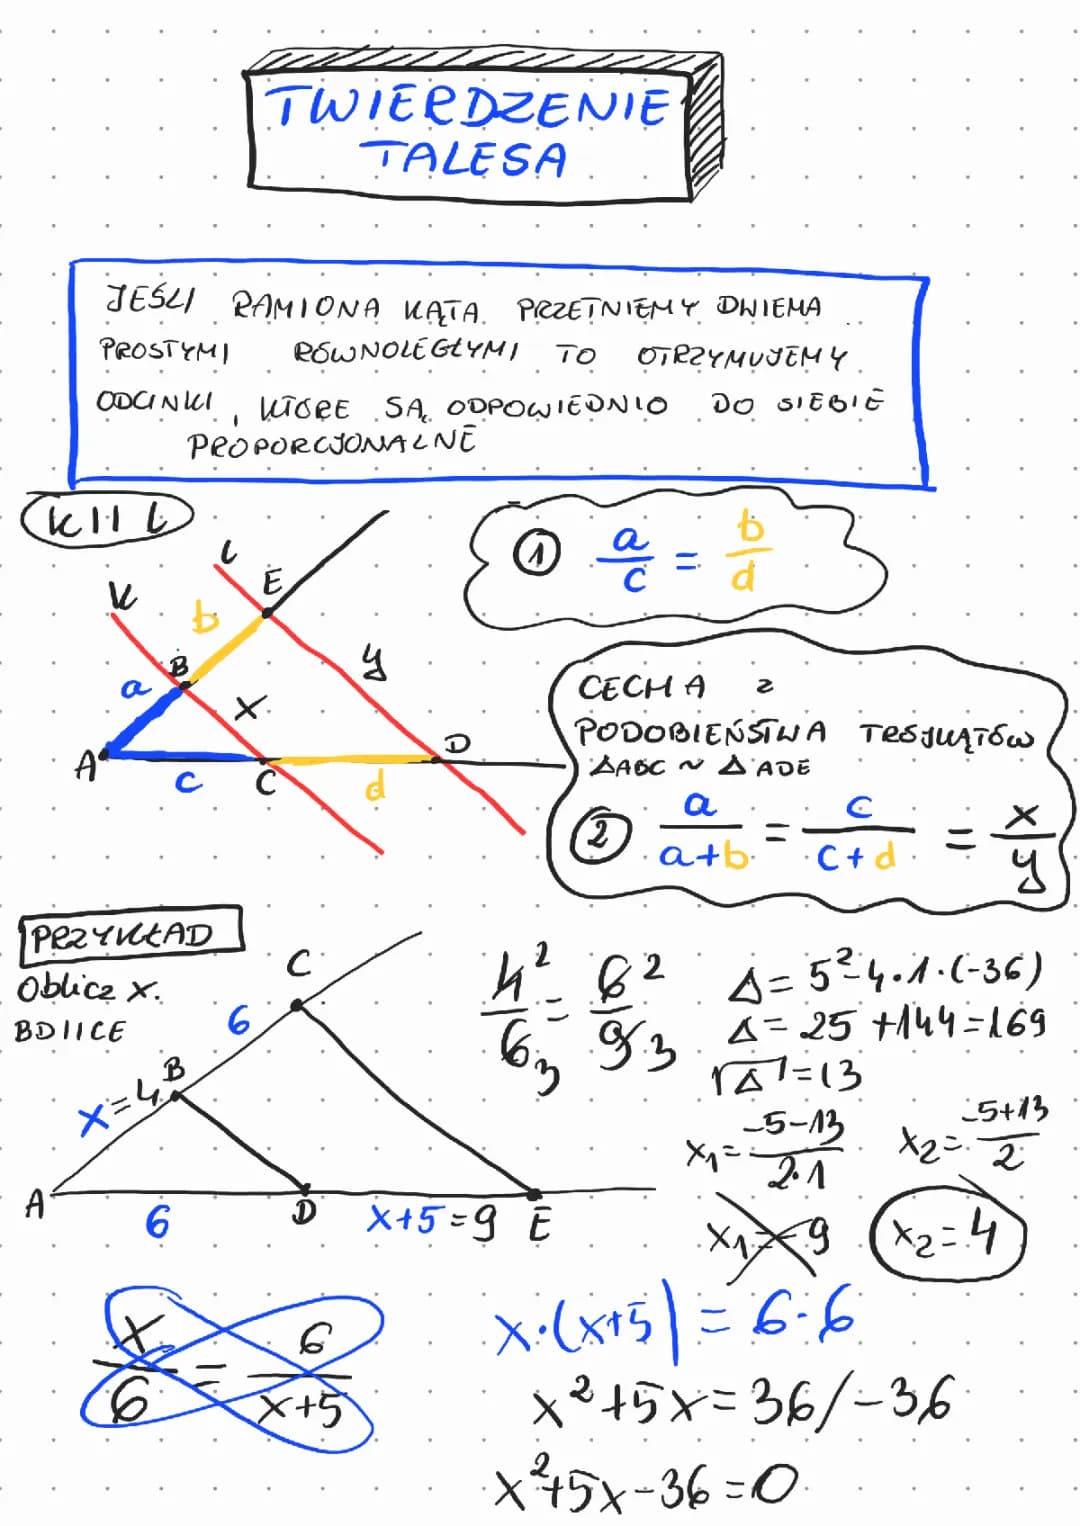 TWIERDZENIE
TALESA
JEŚLI RAMIONA KĄTA PRZETNIEMY DWIEMA
PROSTYMI RÓWNOLEGŁYMI TO OTRZYMUJEMY
ODCINKI, KTÓRE SĄ ODPOWIEDNIO DO SIEBIE
PROPORCJONALNE
k || l
k
l
E
b
B
a
x
y
A
c
C
d
D
① a/c = b/d
CECHA z
PODOBIEŃSTWA TRÓJKĄTÓW
ΔABC ~ ΔADE
② a/a+b = c/c+d = x/y
PRZYKŁAD
Oblicz x.
BD||CE
C
6
B
x=4
A
6
D
x+5=9
E
4²/6₃ = 6²/9₃
Δ= 5²-4·1·(-36)
Δ= 25+144=169
√Δ=13
x₁= -5-13/2·1
x₂= -5+13/2
x₁=-9
x₂=4
x/6 = 6/x+5
x·(x+5)=6·6
x²+5x=36/-36
x²+5x-36=0